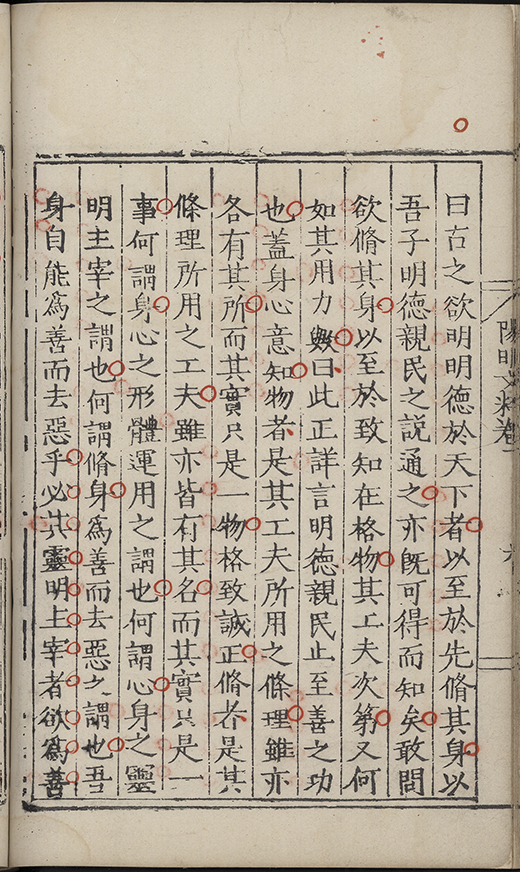 曰古之欲明明德於天下者以至於先脩其身以
吾子明德親民之説通之亦既可得而知矣敢問
欲脩其身以至於致知在格物其工夫次第又何
如其用力歟曰此正詳言明德親民止至善之功
也蓋身心意知物者是其工夫所用之條理雖亦
各有其所而其實只是一物格致誠正脩者是其
條理所用之工夫雖亦皆有其名而其實只是一
事何謂身心之形體運用之謂也何謂心身之靈
明主宰之謂也何謂脩身爲善而去惡之謂也吾
身自能爲善而去惡乎必其靈明主宰者欲爲善
陽明文粹卷一
六